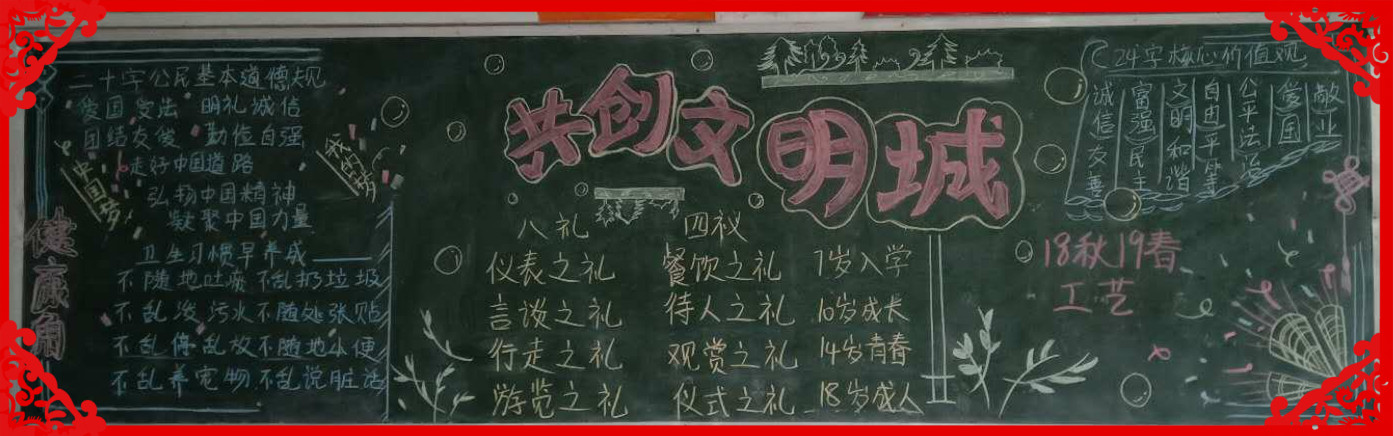 二十字公民基本道德规
爱国守法 明礼诚信
团结友善 勤俭自强
走好中国道路
弘扬中国精神
凝聚中国力量
中国梦
我的梦
卫生习惯早养成
不随地吐痰 不乱扔垃圾
不乱泼污水 不随处张贴
不乱停乱放 不随地小便
不乱养宠物 不乱说脏话
健康角
共创文明城
八礼 四仪
仪表之礼 餐饮之礼 7岁入学
言谈之礼 待人之礼 10岁成长
行走之礼 观赏之礼 14岁青春
游览之礼 仪式之礼 18岁成人
24字核心价值观
敬业
爱国
公平法治
自由平等
文明和谐
富强民主
诚信友善
18秋19春
工艺